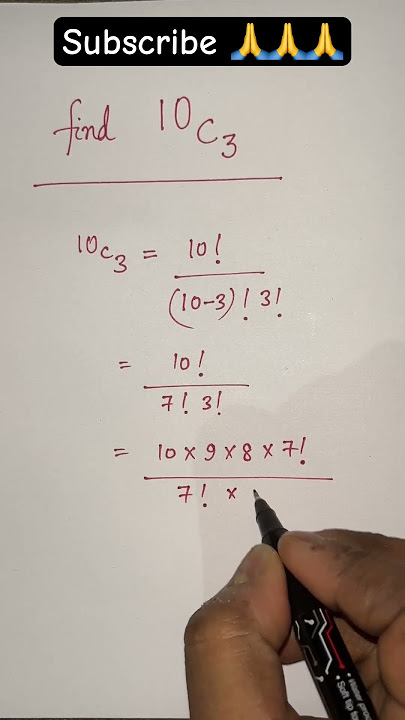 Subscribe 🙏🙏🙏
find ¹⁰C₃
¹⁰C₃ = 10!
(10-3)! 3!
= 10!
7! 3!
= 10 × 9 × 8 × 7!
7! ×